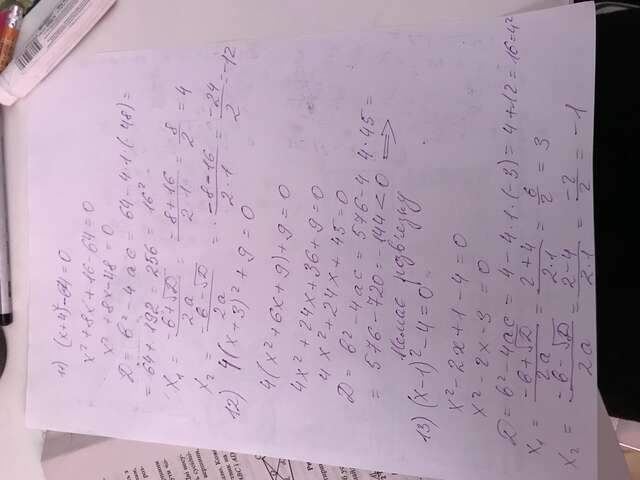 11) (x+4)²-64=0
x²+8x+16-64=0
x²+8x-48=0
D=b²-4ac=64-4·1·(-48)=
=64+192=256=16²
x₁=(-b+√D)/2a=(-8+16)/2·1=8/2=4
x₂=(-b-√D)/2a=(-8-16)/2·1=-24/2=-12
12) 4(x+3)²+9=0
4(x²+6x+9)+9=0
4x²+24x+36+9=0
4x²+24x+45=0
D=b²-4ac=576-4 4·45=
=576-720=-144<0 ⟹
Немає розв'язку
13) (x-1)²-4=0
x²-2x+1-4=0
x²-2x-3=0
D=b²-4ac=4-4·1·(-3)=4+12=16=4²
x₁=(-b+√D)/2a=(2+4)/2·1=6/2=3
x₂=(-b-√D)/2a=(2-4)/2·1=-2/2=-1